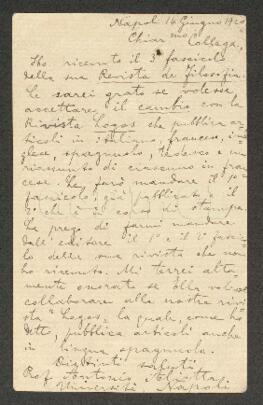 Napoli 14 Giugno 1920
Chiar.mo Collega,
Ho ricevuto il 3° fascicolo
della sua Revista de Filosofia.
Le sarei grato se volesse
accettare il cambio con la
Rivista Logos che pubblica ar-
ticoli in italiano, francese, in-
glese, spagnuolo, tedesco e un
riassunto di ciascuno in fran-
cese. Le farò mandare il 1°
fascicolo, già pubblicato e il
2° che è in corso di stampa.
La prego di farmi mandare
dall'editore il 1° e il 2° fasci-
lo della sua rivista che non
ho ricevuto. Mi terrei alta-
mente onorato se ella volesse
collaborare alla nostra rivi-
sta "Logos", la quale, come ho
detto, pubblica articoli anche
in lingua spagnuola.
Distinti saluti
Prof. Antonio Aliotta
Università Napoli